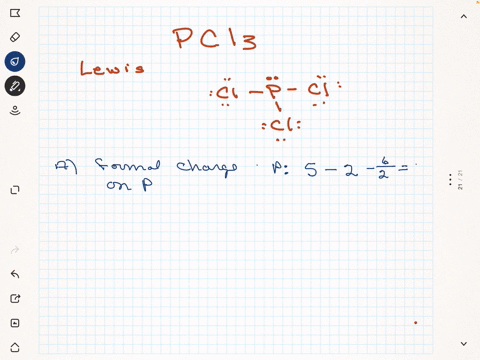 PCl3
Lewis
:Cl - P - Cl:
:Cl:
A) Formal charge P: 5 - 2 - 6/2 =
on P
21 / 21